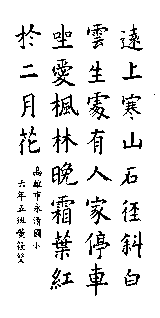 遠上寒山石徑斜白
雲生處有人家停車
坐愛楓林晚霜葉紅
於二月花
高雄市永清國小
六年五班黃